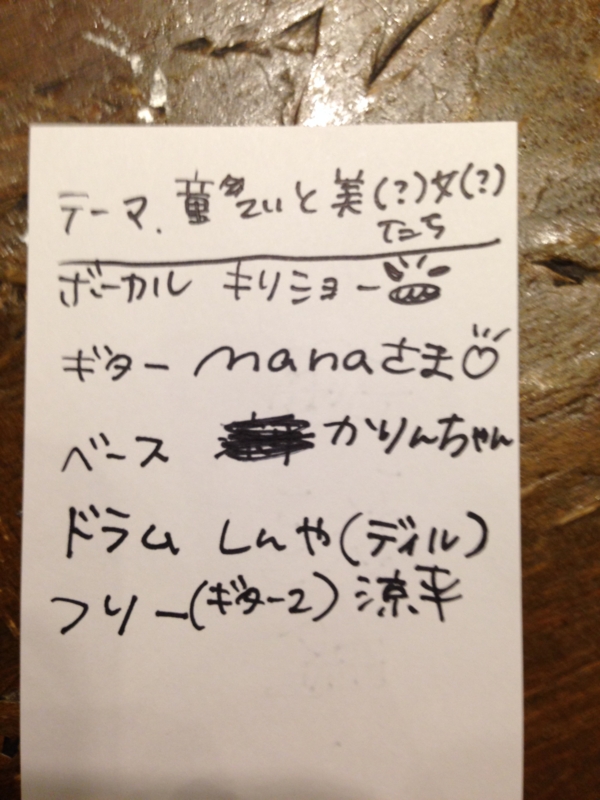 テーマ. 童ていと美(?)女(?)
たち
ボーカル キリショー
ギター manaさま
ベース かりんちゃん
ドラム しんや(ディル)
フリー(ギター2) 涼平